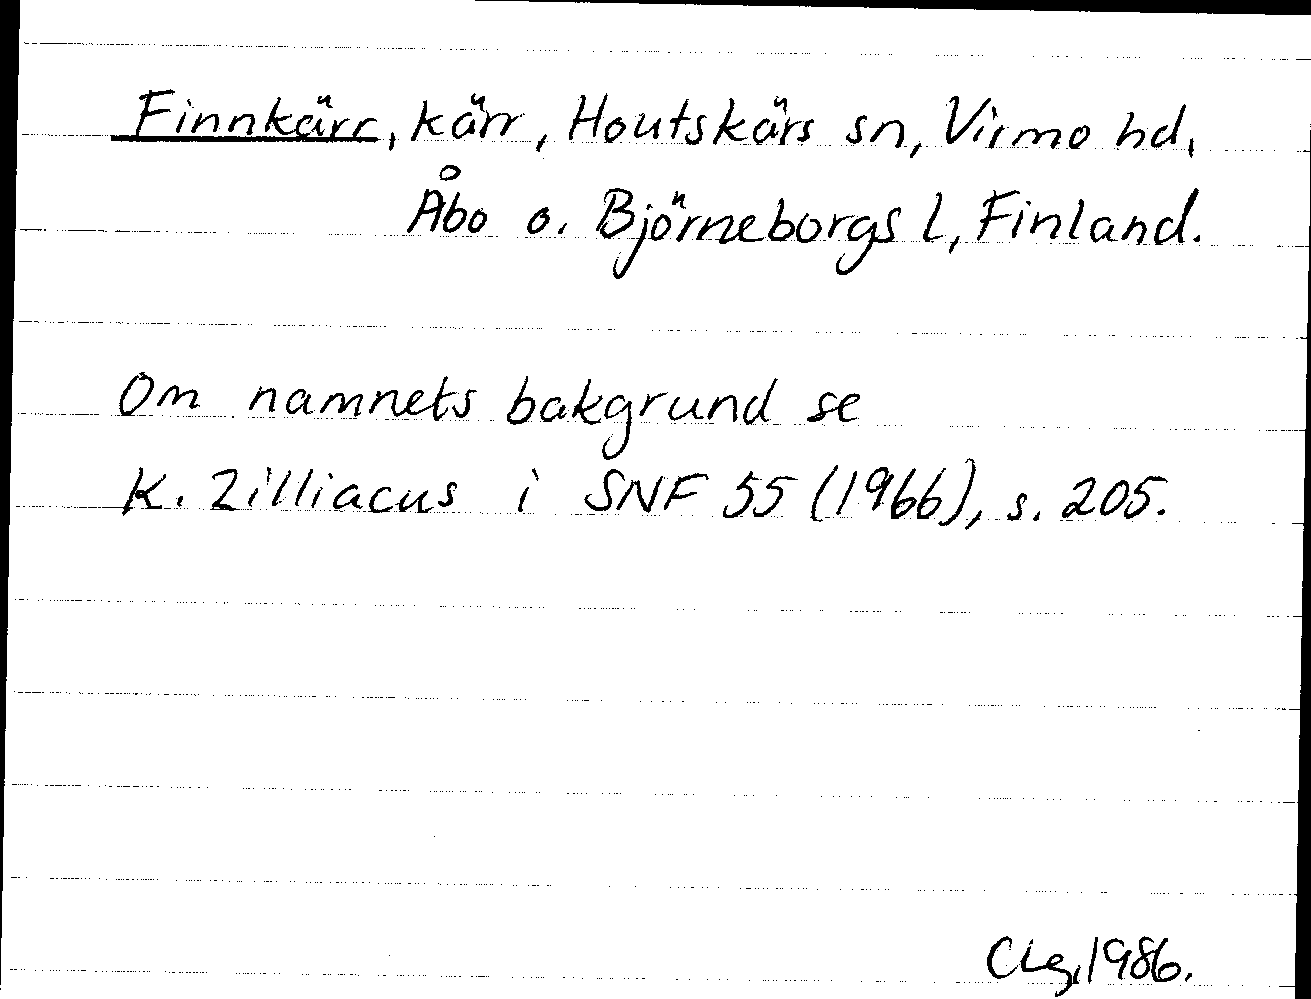 Finnkärr, kärr, Houtskärs sn, Virmo hd,
Åbo o. Björneborgs l, Finland.
Om namnets bakgrund se
K. Zilliacus i SNF 55 (1966), s. 205.
1986.